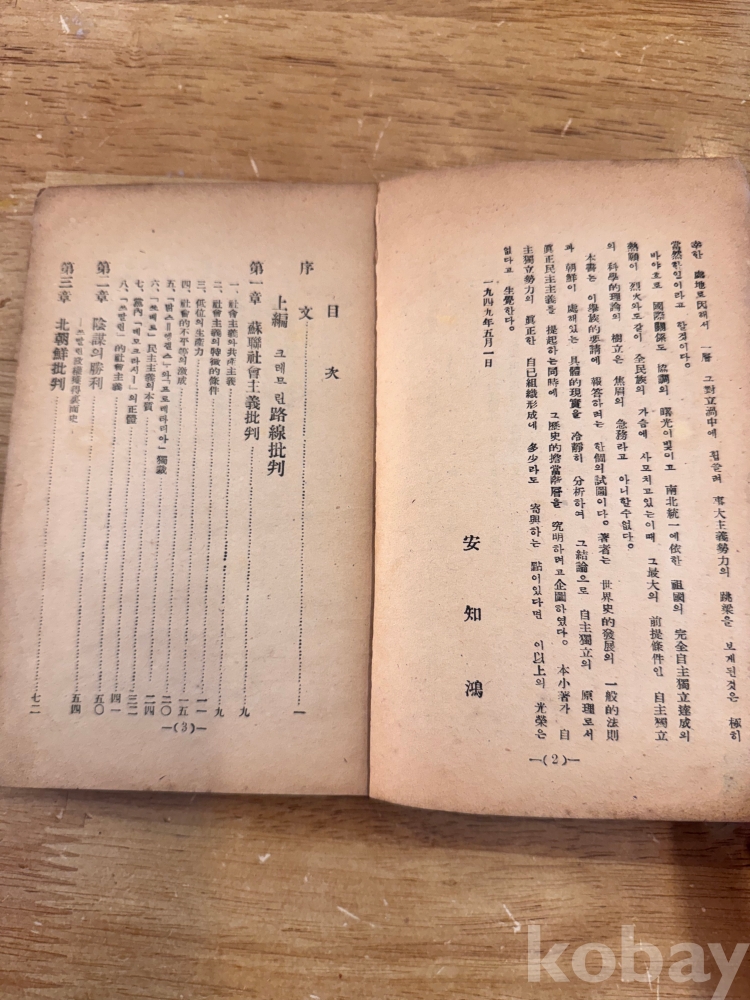 幸한 此地로因해서 一層 그對立渦中에 휩쓸려 事大主義勢力의 跳梁을 보게된것은 極히
當然한일이라고 할것이다.
바야흐로 國際關係도 協調의 曙光이빛이고 南北統一에依한 祖國의 完全自主獨立達成의
熱願이 烈火와도같이 全民族의 가슴에 사모치고있는이때 그最大의 前提條件인 自主獨立
의 科學的理論의 樹立은 焦眉의 急務라고 아니할수없다.
本書는 이擧族的要請에 報答하려는 한個의試圖이다. 著者는 世界史的發展의 一般的法則
과 朝鮮이 處해있는 具體的現實을 冷靜히 分析하여 그結論으로 自主獨立의 原理로서
眞正民主主義를 提起하는同時에 그歷史的擔當階層을 究明하려고企圖하였다. 本小著가 自
主獨立勢力의 眞正한 自己組織形成에 多少라도 寄與하는 點이있다면 이以上의 光榮은
없다고 生覺한다.
一九四九年五月一日
安知鴻
—(2)—
目次
序文……一
上編 크레므린路線批判
第一章 蘇聯社會主義批判……九
一、社會主義와共産主義……九
二、社會主義의特徵的條件……一一
三、低位의生産力……一五
四、社會的不平等의激成……二〇
五、「맑스=엥겔스」와「프로레타리아」獨裁……二四
六、「쏘베트」民主主義의本質……三二
七、黨內「데모크라시ー」의正體……四一
八、「쓰탈린」的社會主義……五〇
第二章 陰謀의勝利……五四
第三章 北朝鮮批判……七二
—(3)—
kobay